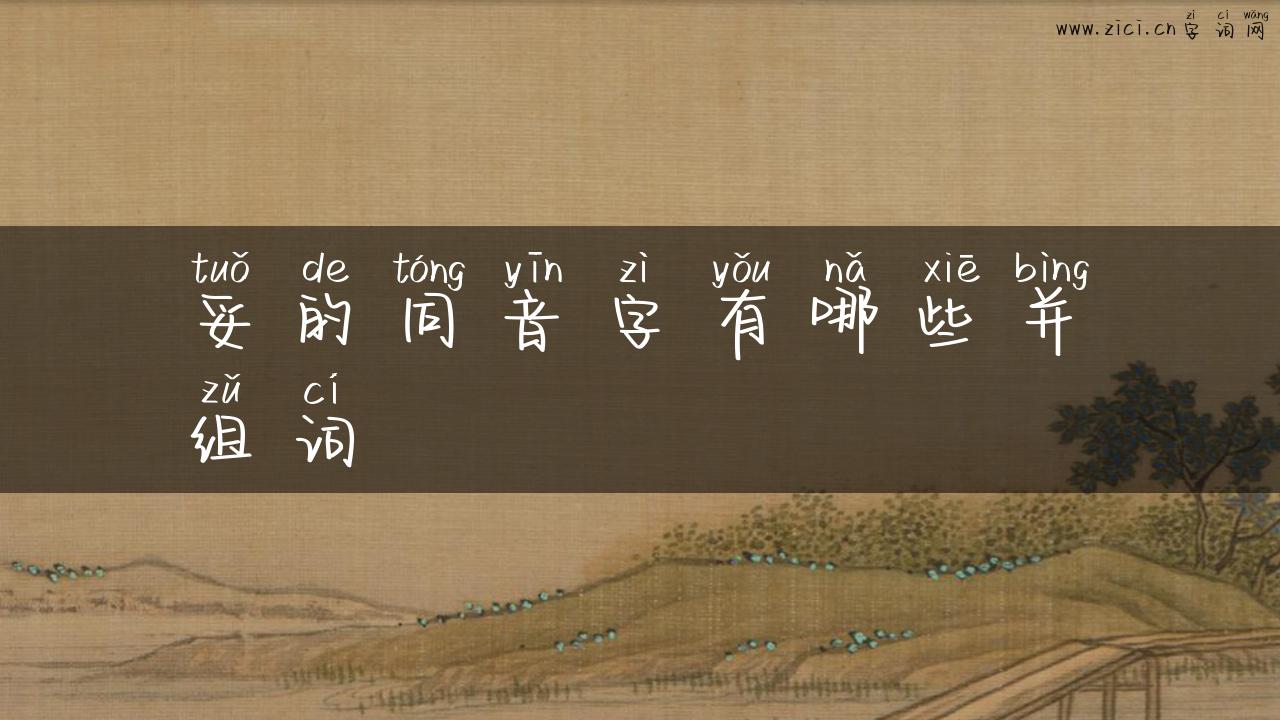 zì cí wǎng
www.zici.cn字词网
tuǒ de tóng yīn zì yǒu nǎ xiē bìng
妥的同音字有哪些并
zǔ cí
组词